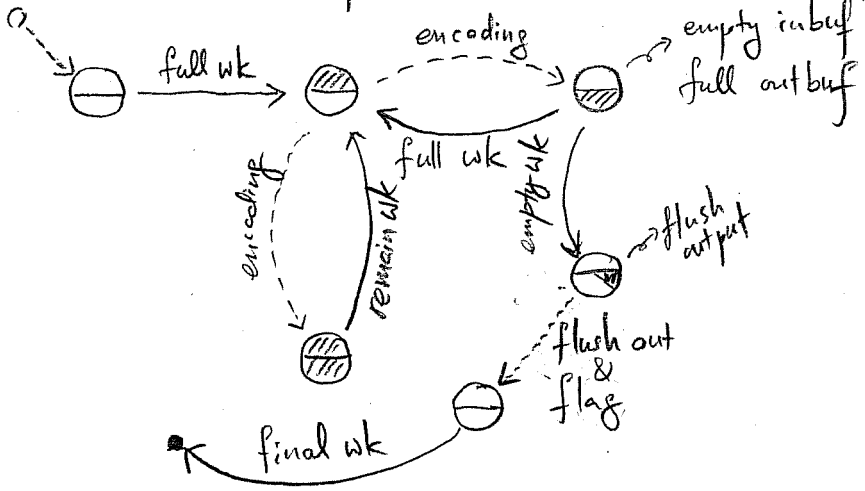 full wk
encoding
empty inbuf
full outbuf
full wk
encoding
remain wk
empty wk
flush
output
flush out
&
flag
final wk